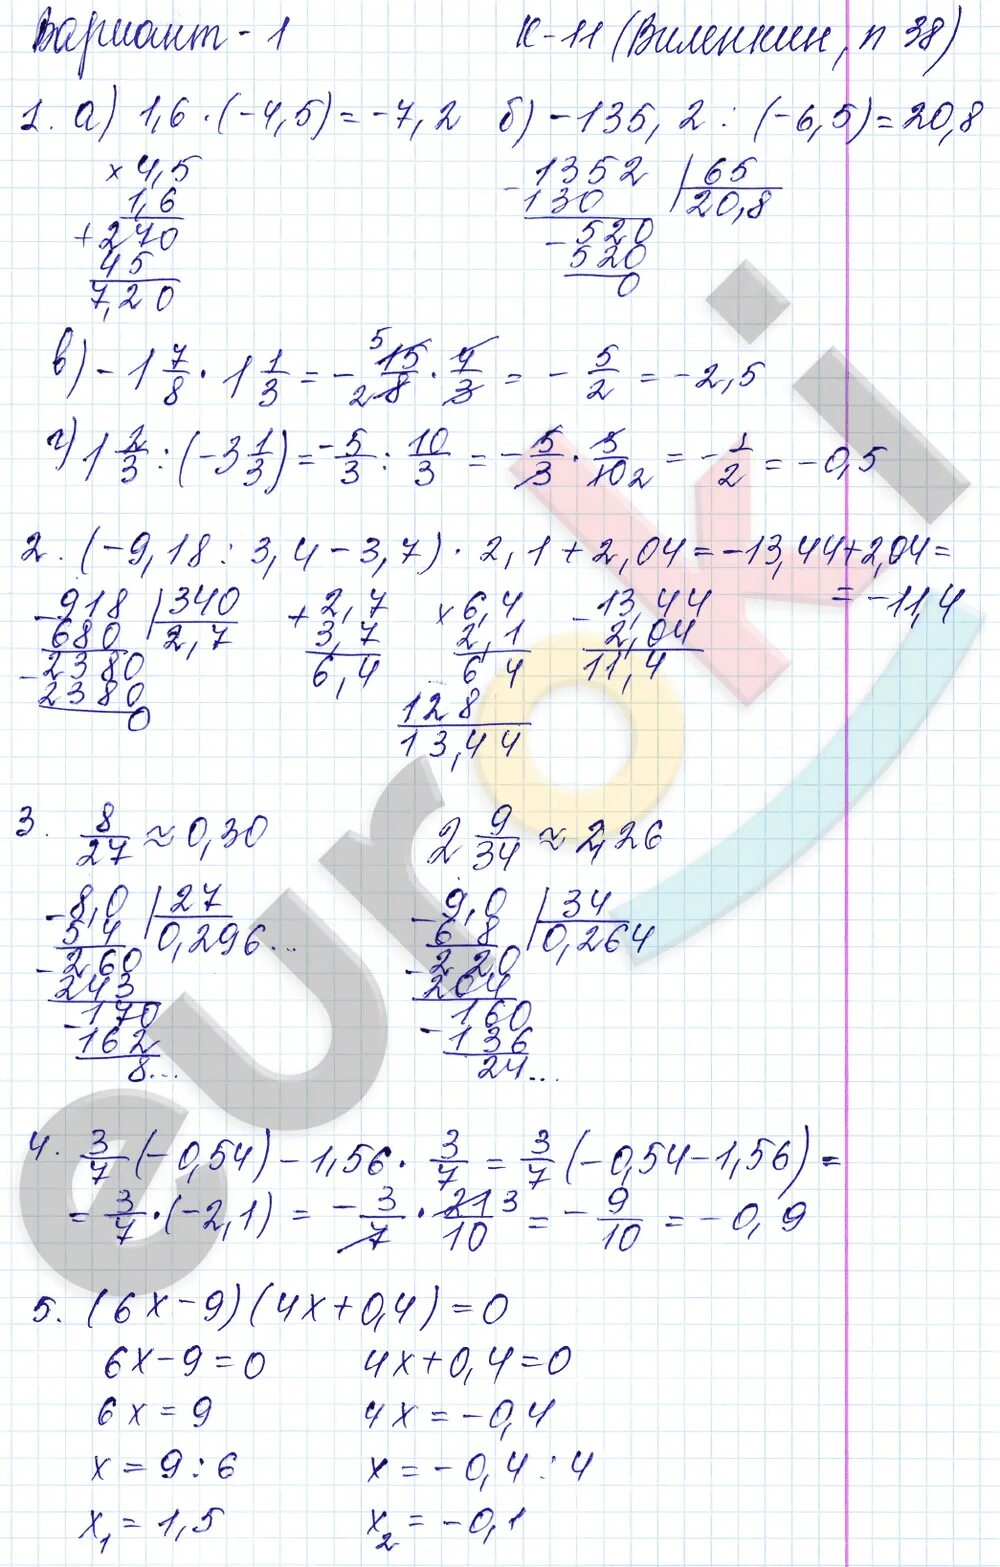 Вариант - 1 К-11 (Виленкин, п 38)
1. а) 1,6 · (-4,5) = -7,2 б) -135,2 : (-6,5) = 20,8
× 4,5
1,6
+ 270
45
7,20
- 1352 | 65
130 20,8
- 520
520
0
в) -1 7/8 · 1 1/3 = - 15/8 · 4/3 = - 5/2 = -2,5
5 2
г) 1 2/3 : (-3 1/3) = - 5/3 : 10/3 = - 5/3 · 3/10 2 = - 1/2 = -0,5
2. (-9,18 : 3,4 - 3,7) · 2,1 + 2,04 = -13,44 + 2,04 =
= -11,4
- 918 | 340
680 2,7
- 2380
2380
0
+ 2,7
3,7
6,4
× 6,4
2,1
6 4
128
13,44
- 13,44
2,04
11,4
3. 8/27 ≈ 0,30 2 9/34 ≈ 2,26
- 8,0 | 27
5 4 0,296...
- 260
243
- 170
162
8...
- 9,0 | 34
6 8 0,264
- 2 20
204
- 160
136
24...
4. 3/7 (-0,54) - 1,56 · 3/7 = 3/7 (-0,54 - 1,56) =
= 3/7 · (-2,1) = - 3/7 · 21/10 3 = - 9/10 = -0,9
5. (6x - 9)(4x + 0,4) = 0
6x - 9 = 0 4x + 0,4 = 0
6x = 9 4x = -0,4
x = 9 : 6 x = -0,4 : 4
x₁ = 1,5 x₂ = -0,1
euroki